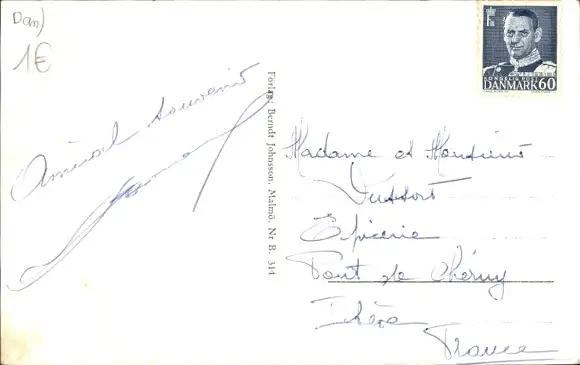 Dan)
1€
Amical souvenir
Förlag: Berndt Johnsson, Malmö, Nr B. 314
KONGELIG POST
DANMARK 60
Madame et Monsieur
Epicerie
Pont de Chéruy
Isère
France